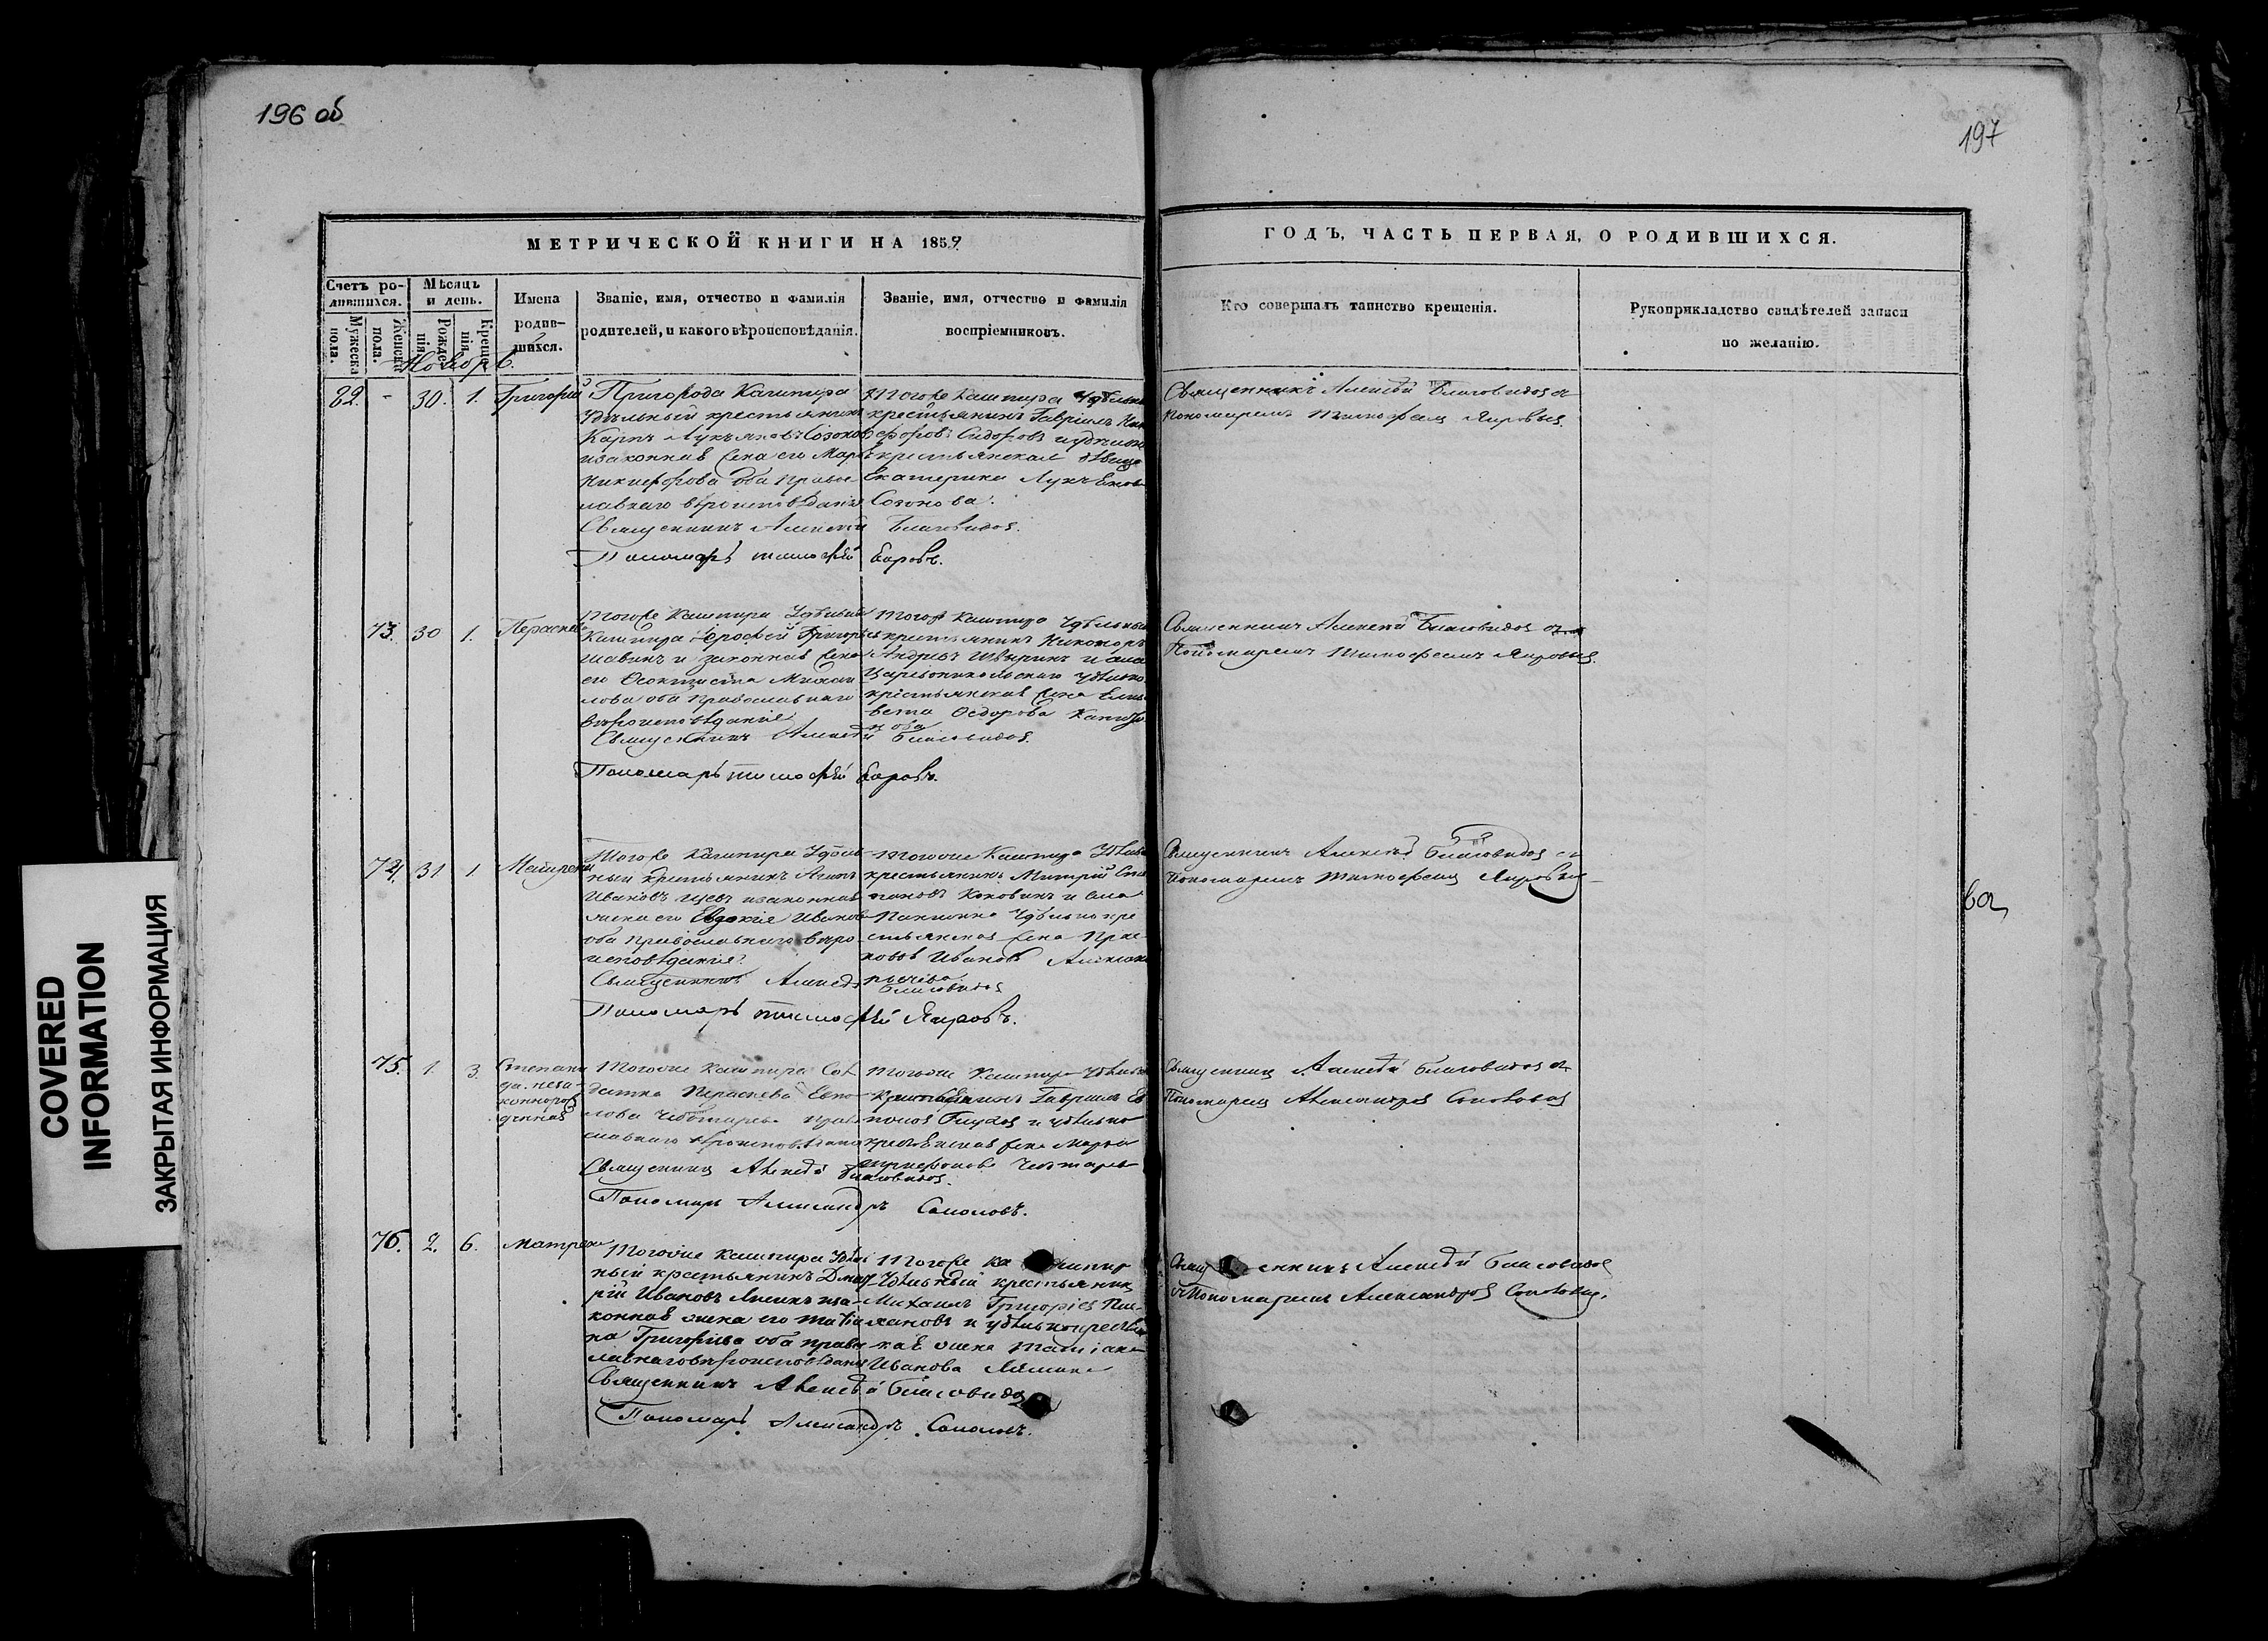 196 об
197
МЕТРИЧЕСКОЙ КНИГИ НА 1859
ГОДЪ, ЧАСТЬ ПЕРВАЯ, О РОДИВШИХСЯ.
Счетъ ро-
дившихся.
Мѣсяцъ
и день.
Имена
родив-
шихся.
Званіе, имя, отчество и фамилія
родителей, и какого вѣроисповѣданія.
Званіе, имя, отчество и фамилія
воспріемниковъ.
Кто совершалъ таинство крещенія.
Рукоприкладство свидѣтелей записи
по желанію.
Мужеска
пола.
Женска
пола.
Рожде-
нія.
Креще-
нія.
82. - 30. 1. Григорій
Пригорода Кашпира
Удѣльный крестьянинъ
Карпъ Лукьяновъ Созонов
изаконная жена его Марья
Никифорова оба право
славнаго вѣроисповѣданія
Священникъ Алексей Благовидов.
Пономарь тимофей Яировъ.
Тогоже Кашпира Удѣльный
крестьянинъ Гаврiилъ Ни
кифоровъ Сидоровъ иудѣльно
крестьянская дѣвица
Екатерина Лукьянова
Созонова.
Священникъ Алексѣй Благовидов съ
Пономаремъ Тимофеем Яировым
73. 30 1. Параскева
Тогоже Кашпира Удѣльный
Кашпира Ерофей Григорьевъ
и законная жена
его Феоктиста Михаи
лова оба Православнаго
вѣроисповѣданія
Священникъ Алексѣй Благовидов.
Пономарь тимофѣй Яировъ.
Тогож Кашпира Удѣльный
крестьянинъ Никаноръ
Андреевъ
Царевоникольскаго Удѣльно
крестьянская жена Елиза
вета Федорова
Священникъ Алексѣй Благовидов съ
Пономаремъ Тимофеемъ Яировым.
74. 31 1.
Тогоже Кашпира Удѣль
ный крестьянинъ
Ивановъ изаконная
жена его Евдокія Иванова
оба православнаго вѣро
исповѣданія
Священникъ Алексѣй Благовидов
Пономарь тимофѣй Яировъ.
Тогоже Кашпира Удѣльный
крестьянинъ Митрій
и села
Удѣльно кре
стьянская жена Прас
ковья Иванова
Священникъ Алексѣй Благовидов съ
Пономаремъ Тимофеем Яировым
75. 1. 3. Степани
да неза
коннорож
денная
Тогоже Кашпира Сол
датка Параскева
Чеботарева право
славнаго вѣроисповѣданія
Священникъ Алексѣй Благовидов.
Пономарь Александръ Соколовъ.
Тогоже Кашпира Удѣльный
крестьянинъ Гаврiилъ
и удѣльно
крестьянская жена Марья
Чеботарева
Священникъ Алексѣй Благовидов съ
Пономарем Александров Соколовым
76. 2. 6. Матрена
Тогоже Кашпира Удѣль
ный крестьянинъ Дмит
рій Ивановъ Лямин иза
конная жена его Татiа
на Григорьева оба право
славнаго вѣроисповѣданія
Священникъ Алексѣй Благовидов
Пономарь Александръ Соколовъ.
Тогоже Кашпир
Удѣльный крестьянин
Михаилъ Григорiев
и удѣльнокрестьян
кая жена Татiана
Иванова Лямина
Священникъ Алексѣй Благовидов
съ Пономаремъ Александров Соколовым.
COVERED
INFORMATION
ЗАКРЫТАЯ ИНФОРМАЦИЯ